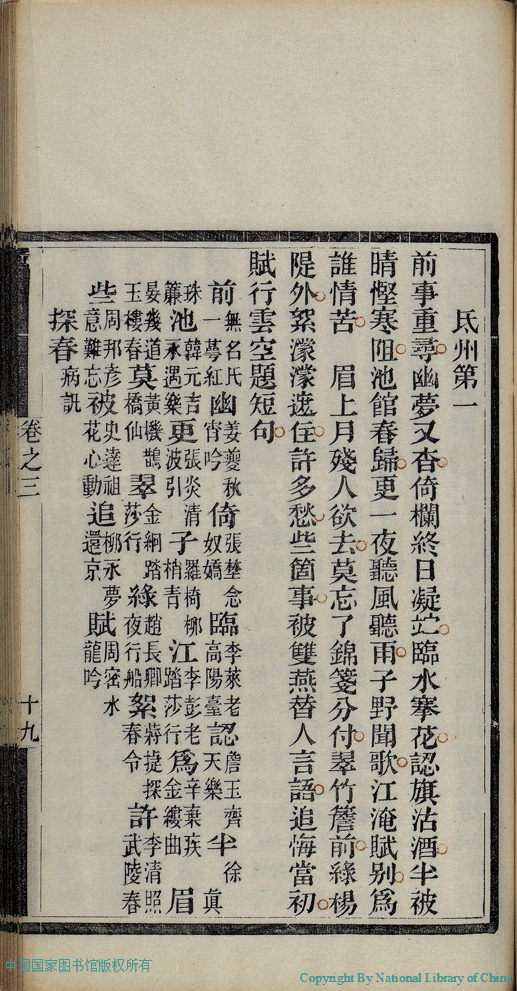 氏州第一
前事重尋幽夢又杳倚欄終日凝竚臨水搴花認旗沽酒半被
晴慳寒阻池館春歸更一夜聽風聽雨子野聞歌江淹賦别爲
誰情苦　眉上月殘人欲去莫忘了錦箋分付翠竹簷前綠楊
隄外絮濛濛遮住許多愁些箇事被雙燕替人言語追悔當初
賦行雲空題短句
前無名氏一萼紅幽姜夔秋宵吟倚張埜念奴嬌臨李萊老高陽臺認詹玉齊天樂半徐眞
珠簾池韓元吉永遇樂更張炎清波引子羅椅柳梢青江李彭老踏莎行爲辛棄疾金縷曲眉
晏幾道玉樓春莫黃機鵲橋仙翠金絅踏莎行綠趙長卿夜行船絮蔣捷探春令許李清照武陵春
些周邦彥意難忘被史達祖花心動追柳永夢還京賦周密水龍吟
探春病訊
卷之三
十九
中国国家图书馆版权所有
Copyright By National Library of China